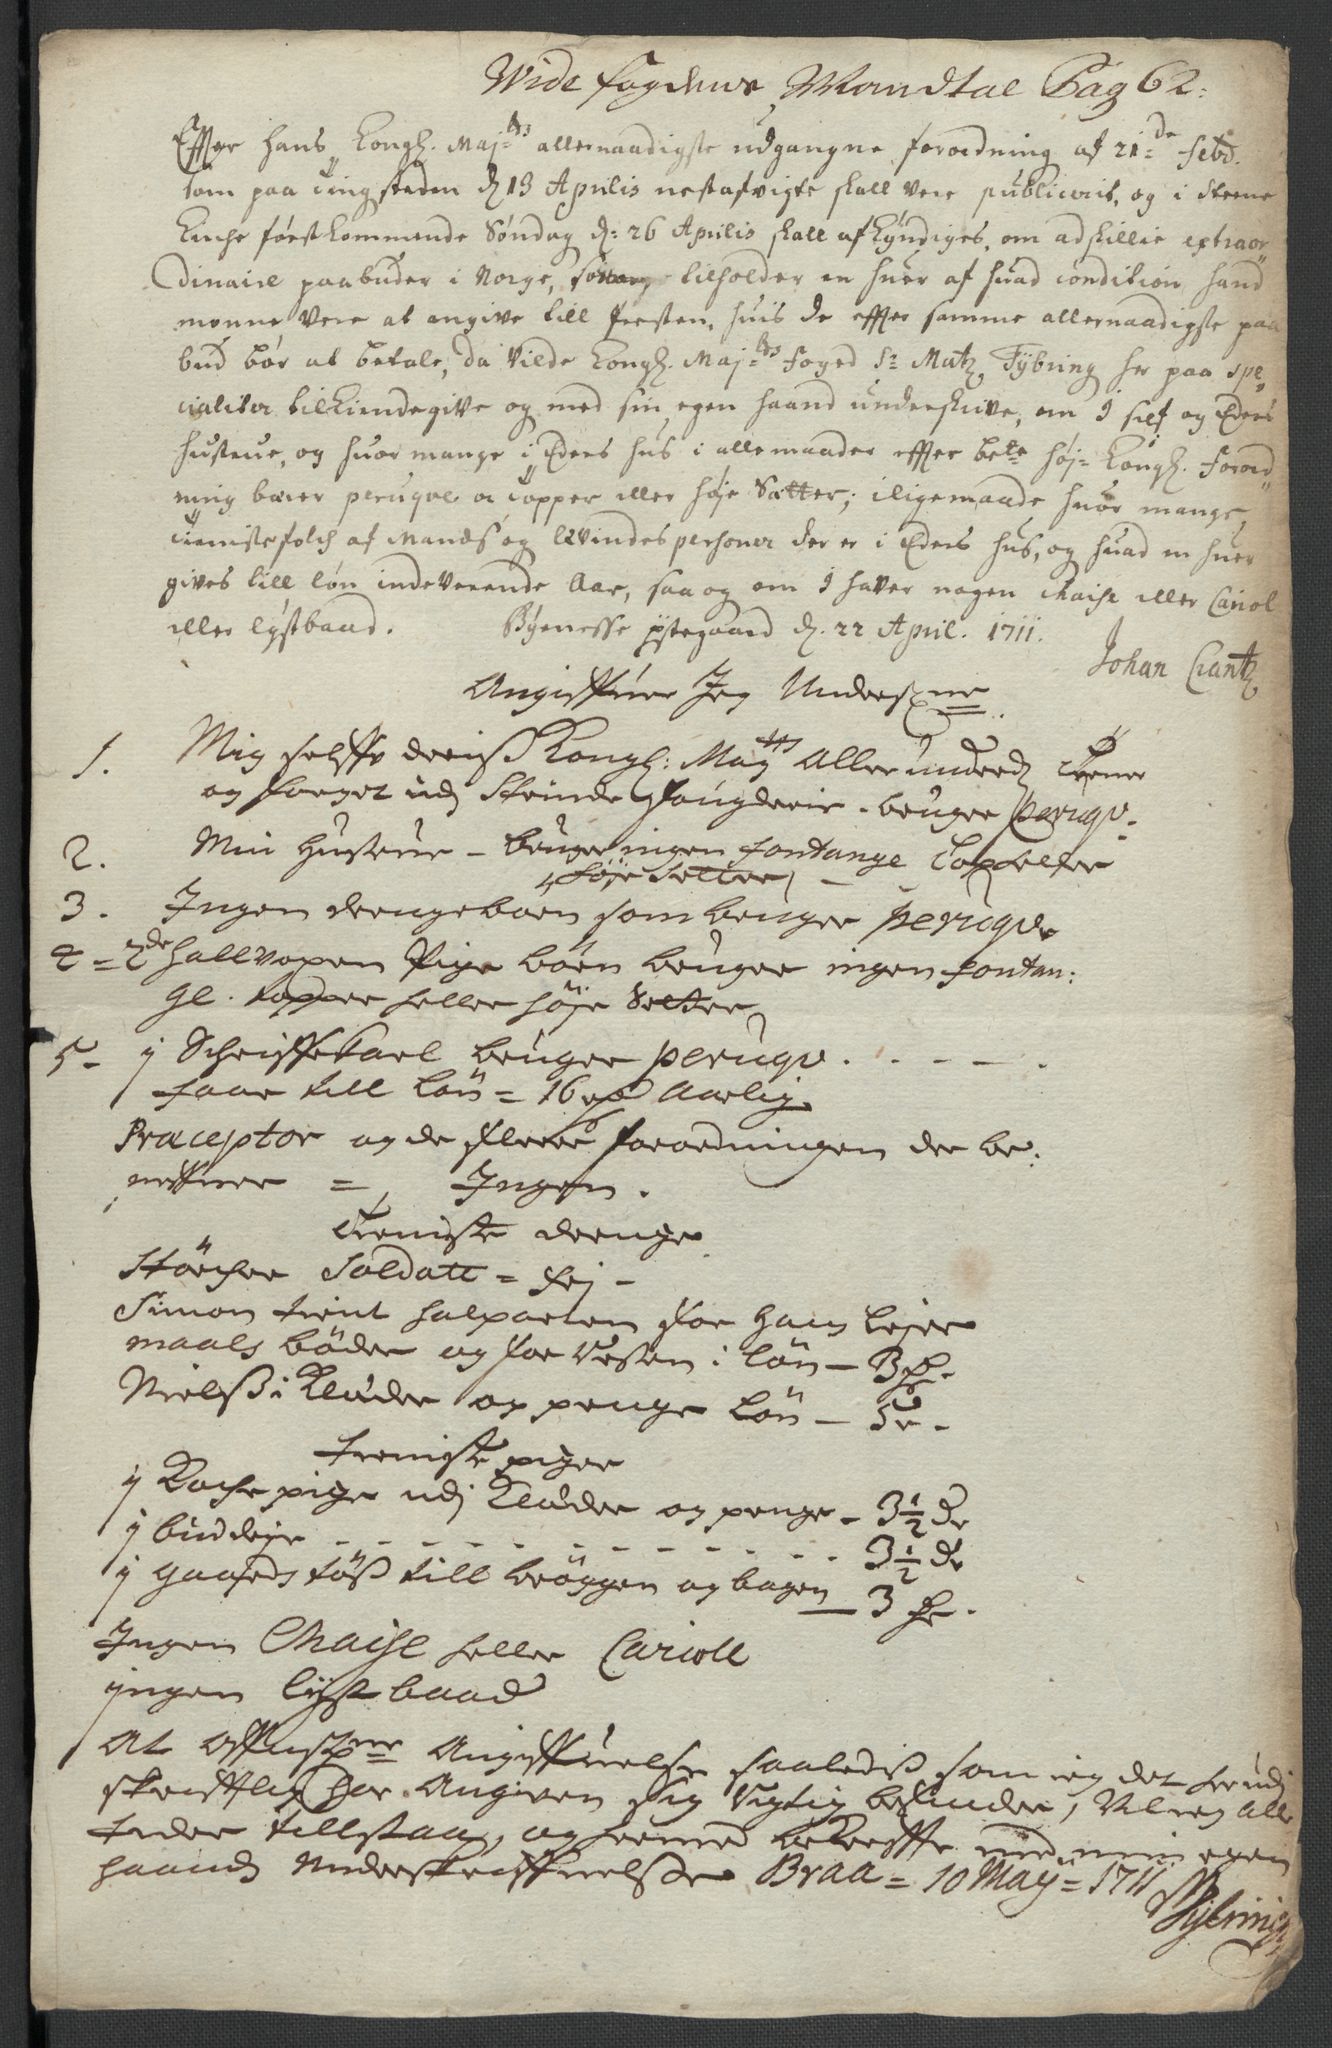 Wide fogdens Mandtal Pag 62:
Effter hans Kongl. Maj:ts allernaadigste udgangne forordning af 21:de Febr.
som paa tingsteden d 13 Aprilis nestafvigte skall vere publicerit, og i Steene
Kirche førstkommende Søndag d: 26 Aprilis skall afkyndiges, om adskillie extraor
dinaire paabuder i Norge, tilholder en huer af huad condition hand
monne vere at angive till Presten, huis de effter samme allernaadigste paa
bud bør at betale, da vilde Kongl. Maj:ts foged Sr Matz Tÿbring her paa spe
cialiter tilkiendegive og med sin egen haand underskrive, om I self og Eders
hustrue, og huor mange i Eders hus i alle maader effter bete høj- Kongl. Forord
ning bærer peruqve oc topper eller høje Sætter; iligemaade huor mange
tienistefolch af Mands og qvindes personer der er i Eders hus, og huad en huer
gives till løn indeverende Aar, saa og om I haver nogen Chaise eller Cariol
eller lystbaad. Bÿenesse prestegaard d. 22 April. 1711.
Johan Crantz
Angiffuer Jeg Underschne
1. Mig selffv deriss Kongl: Mayts Allerunderd Tiener
og foeget udj Strinde fougderie - bruger peruqv-
2. Min Hustrue - bruger ingen fontange Top eller
høje Setter
3. Ingen drengebørn som bruger peruqve
4 = 2de halfvoxen Pige børn bruger ingen fontan:
ge. topper heller höje Setter
5 - j Schriffvekarl bruger peruqv. . - - .
faar till løn = 16 rd Aarlig
Præceptor og de flere forordningen der be:
neffner = Ingen.
Tieniste drenge
Störcher Soldatt = frj -
Simon tient halparten for hans leyer
maals böder og for resten i lön - 3 rd.
Nielss i Klæder og penge løn - 5 r -
tieniste piger
j Koche pige udj klæder og penge - 3½ dr
j budeye - - - - - - - - - - - 3½ dr
j gaards töss till brÿggen og bagen — 3 dr.
Ingen Chaise heller Cariole
jngen lÿstbaad
At offuenschne Angiffuelse saaledis som ieg det herudj
skrifftlig har Angiven sig rigtig befinder, Vil ieg alle
steder tillstaa, og hermed bekreffte med min egen
haands underskriffuelsse Braa = 10 Maÿ = 1711
MTÿbring